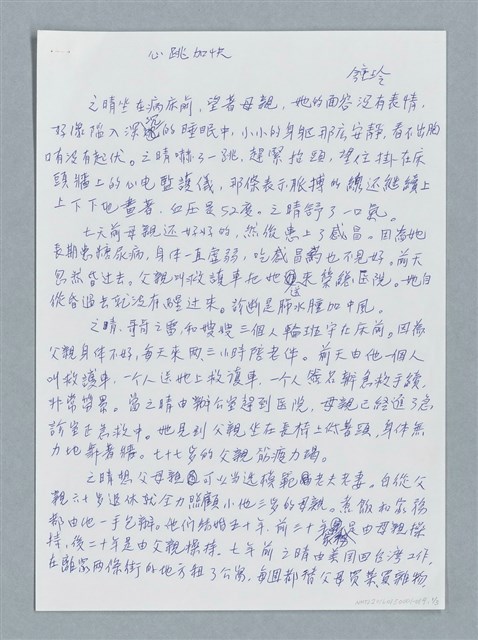 心跳加快
之晴坐在病床前，望著母親，她的面容沒有表情，
好像陷入深沉的睡眠中，小小的身軀那麼安靜，看不出胸
口有沒有起伏。之晴嚇了一跳，趕緊抬頭，望住掛在床
頭牆上的心电監護儀，那條表示脈搏的線还繼續上
上下下地畫著，血压是52度。之晴舒了一口氣。
七天前母親还好好的，然後患上了感冒。因為她
長期患糖尿病，身体一直虛弱，吃感冒药也不見好。前天
忽然昏过去。父親叫救護車把她送來榮總医院。她自
從昏過去就沒有醒过来。診断是肺水腫加中風。
之晴、哥哥之雷和嫂嫂三個人輪班守在床前。因為
父親身体不好，每天來兩三小時陪老伴。前天由他一個人
叫救護車，一个人送她上救護車，一个人簽名辦急救手續，
非常勞累。當之晴由辦公室趕到医院，母親已經進了急
診室正急救中。她見到父親坐在長椅上妤著頭，身体無
力地靠著牆。七十七岁的父親筋疲力竭。
之晴想父母親可以当选模範老夫老妻。自從父
親六十岁退休就全力照顧小他三岁的母親。煮飯和家務
都由他一手包辦。他們結婚五十年，前二十年家務是由母親操
持，後二十年是由父親操持。七年前之晴由美国回台湾工作，
在離家兩條街的地方租了公寓，每週都替父母買菜買雜物，